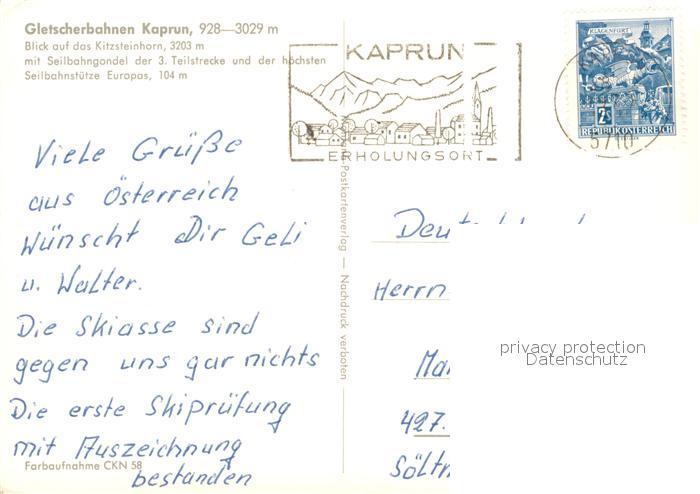 Gletscherbahnen Kaprun, 928—3029 m
Blick auf das Kitzsteinhorn, 3203 m
mit Seilbahngondel der 3. Teilstrecke und der höchsten
Seilbahnstütze Europas, 104 m
KAPRUN
ERHOLUNGSORT
KLAGENFURT
2S
REPUBLIK ÖSTERREICH
5710
Viele Grüße
aus Österreich
Wünscht Dir Geli
u. Walter.
Die Skiasse sind
gegen uns gar nichts
Die erste Skiprüfung
mit Auszeichnung
bestanden
Farbaufnahme CKN 58
Postkartenverlag — Nachdruck verboten
Herrn
427.
privacy protection
Datenschutz